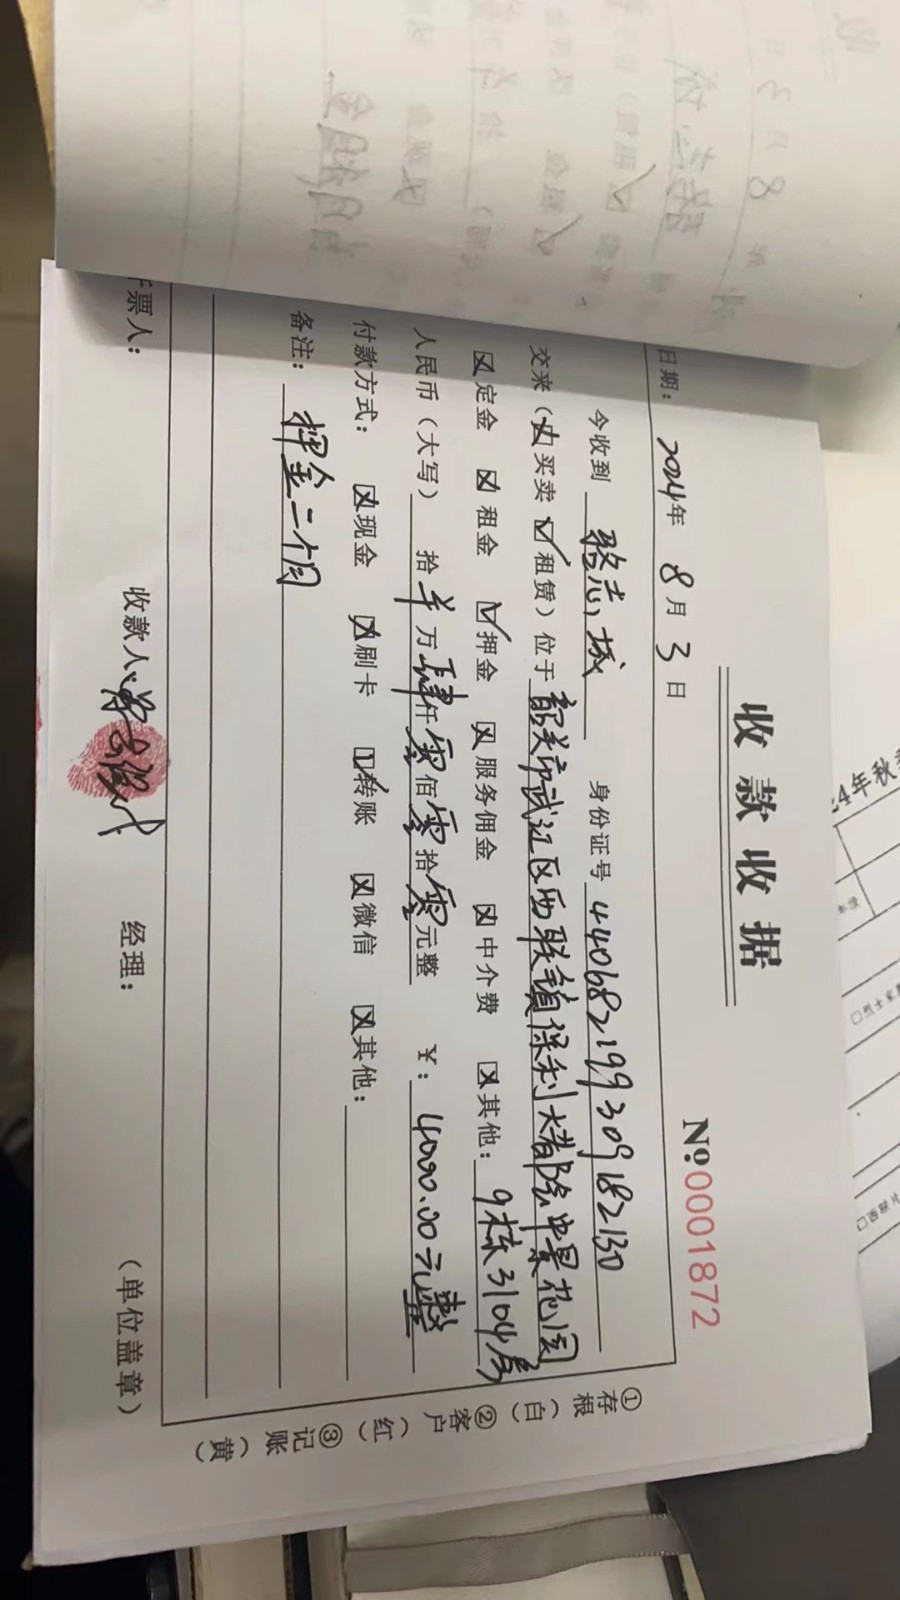 收款收据
№0001872
日期： 2024年 8月 3日
今收到 骆志城 身份证号 440682199309182130
交来（☒买卖 ☑租赁）位于 韶关市武江区西联镇保利大都会中景花园
☒定金 ☒租金 ☑押金 ☒服务佣金 ☒中介费 ☒其他： 9栋3104房
人民币（大写） 拾 ¥ 万 肆 仟 零 佰 零 拾 零 元整 ￥： 4000.00元整
付款方式： ☒现金 ☒刷卡 ☑转账 ☒微信 ☒其他：
备注： 押金二个月
票人： 收款人： 经理： （单位盖章）
①存根（白） ②客户（红） ③记账（黄）
24年秋